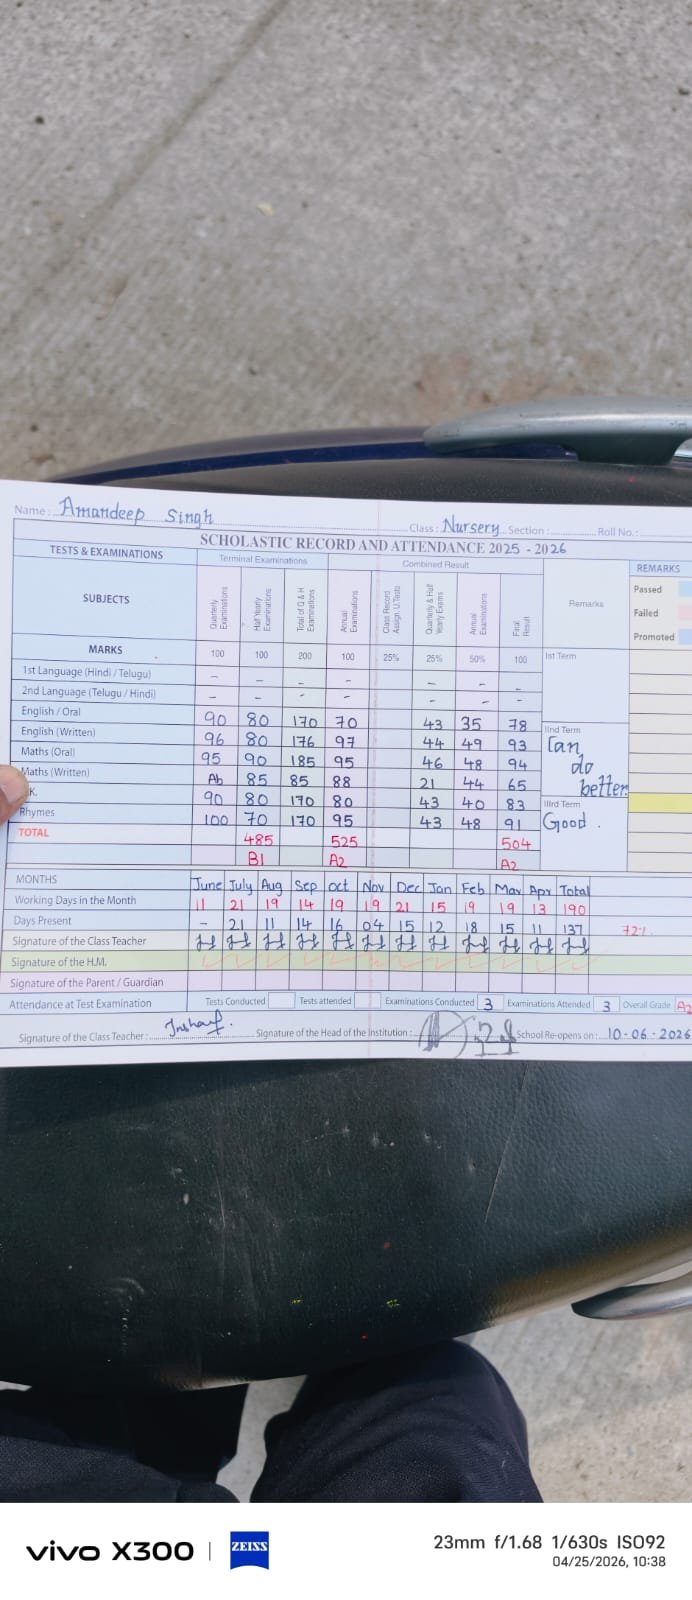 Name: Amandeep Singh Class: Nursery Section: Roll No.:
SCHOLASTIC RECORD AND ATTENDANCE 2025 - 2026
TESTS & EXAMINATIONS Terminal Examinations Combined Result Remarks REMARKS
SUBJECTS Quarterly Examinations Half Yearly Examinations Total of Q & H Examinations Annual Examinations Class Record Assign. U.Tests Quarterly & Half Yearly Exams Annual Examinations Final Result
Passed
Failed
Promoted
MARKS 100 100 200 100 25% 25% 50% 100 Ist Term
1st Language (Hindi / Telugu) - - - - - - -
2nd Language (Telugu / Hindi) - - - - - - -
English / Oral 90 80 170 70 43 35 78
English (Written) 96 80 176 97 44 49 93
Maths (Oral) 95 90 185 95 46 48 94
Maths (Written) Ab 85 85 88 21 44 65
K. 90 80 170 80 43 40 83
Rhymes 100 70 170 95 43 48 91
IInd Term
Can
do
better
IIIrd Term
Good.
TOTAL 485 525 504
B1 A2 A2
MONTHS June July Aug Sep Oct Nov Dec Jan Feb Mar Apr Total
Working Days in the Month 11 21 19 14 19 19 21 15 19 19 13 190
Days Present - 21 11 14 16 04 15 12 18 15 11 137 72%
Signature of the Class Teacher
Signature of the H.M.
Signature of the Parent / Guardian
Attendance at Test Examination Tests Conducted Tests attended Examinations Conducted 3 Examinations Attended 3 Overall Grade A2
Signature of the Class Teacher: Signature of the Head of the Institution: School Re-opens on: 10-06-2026
vivo X300 | ZEISS
23mm f/1.68 1/630s ISO92
04/25/2026, 10:38